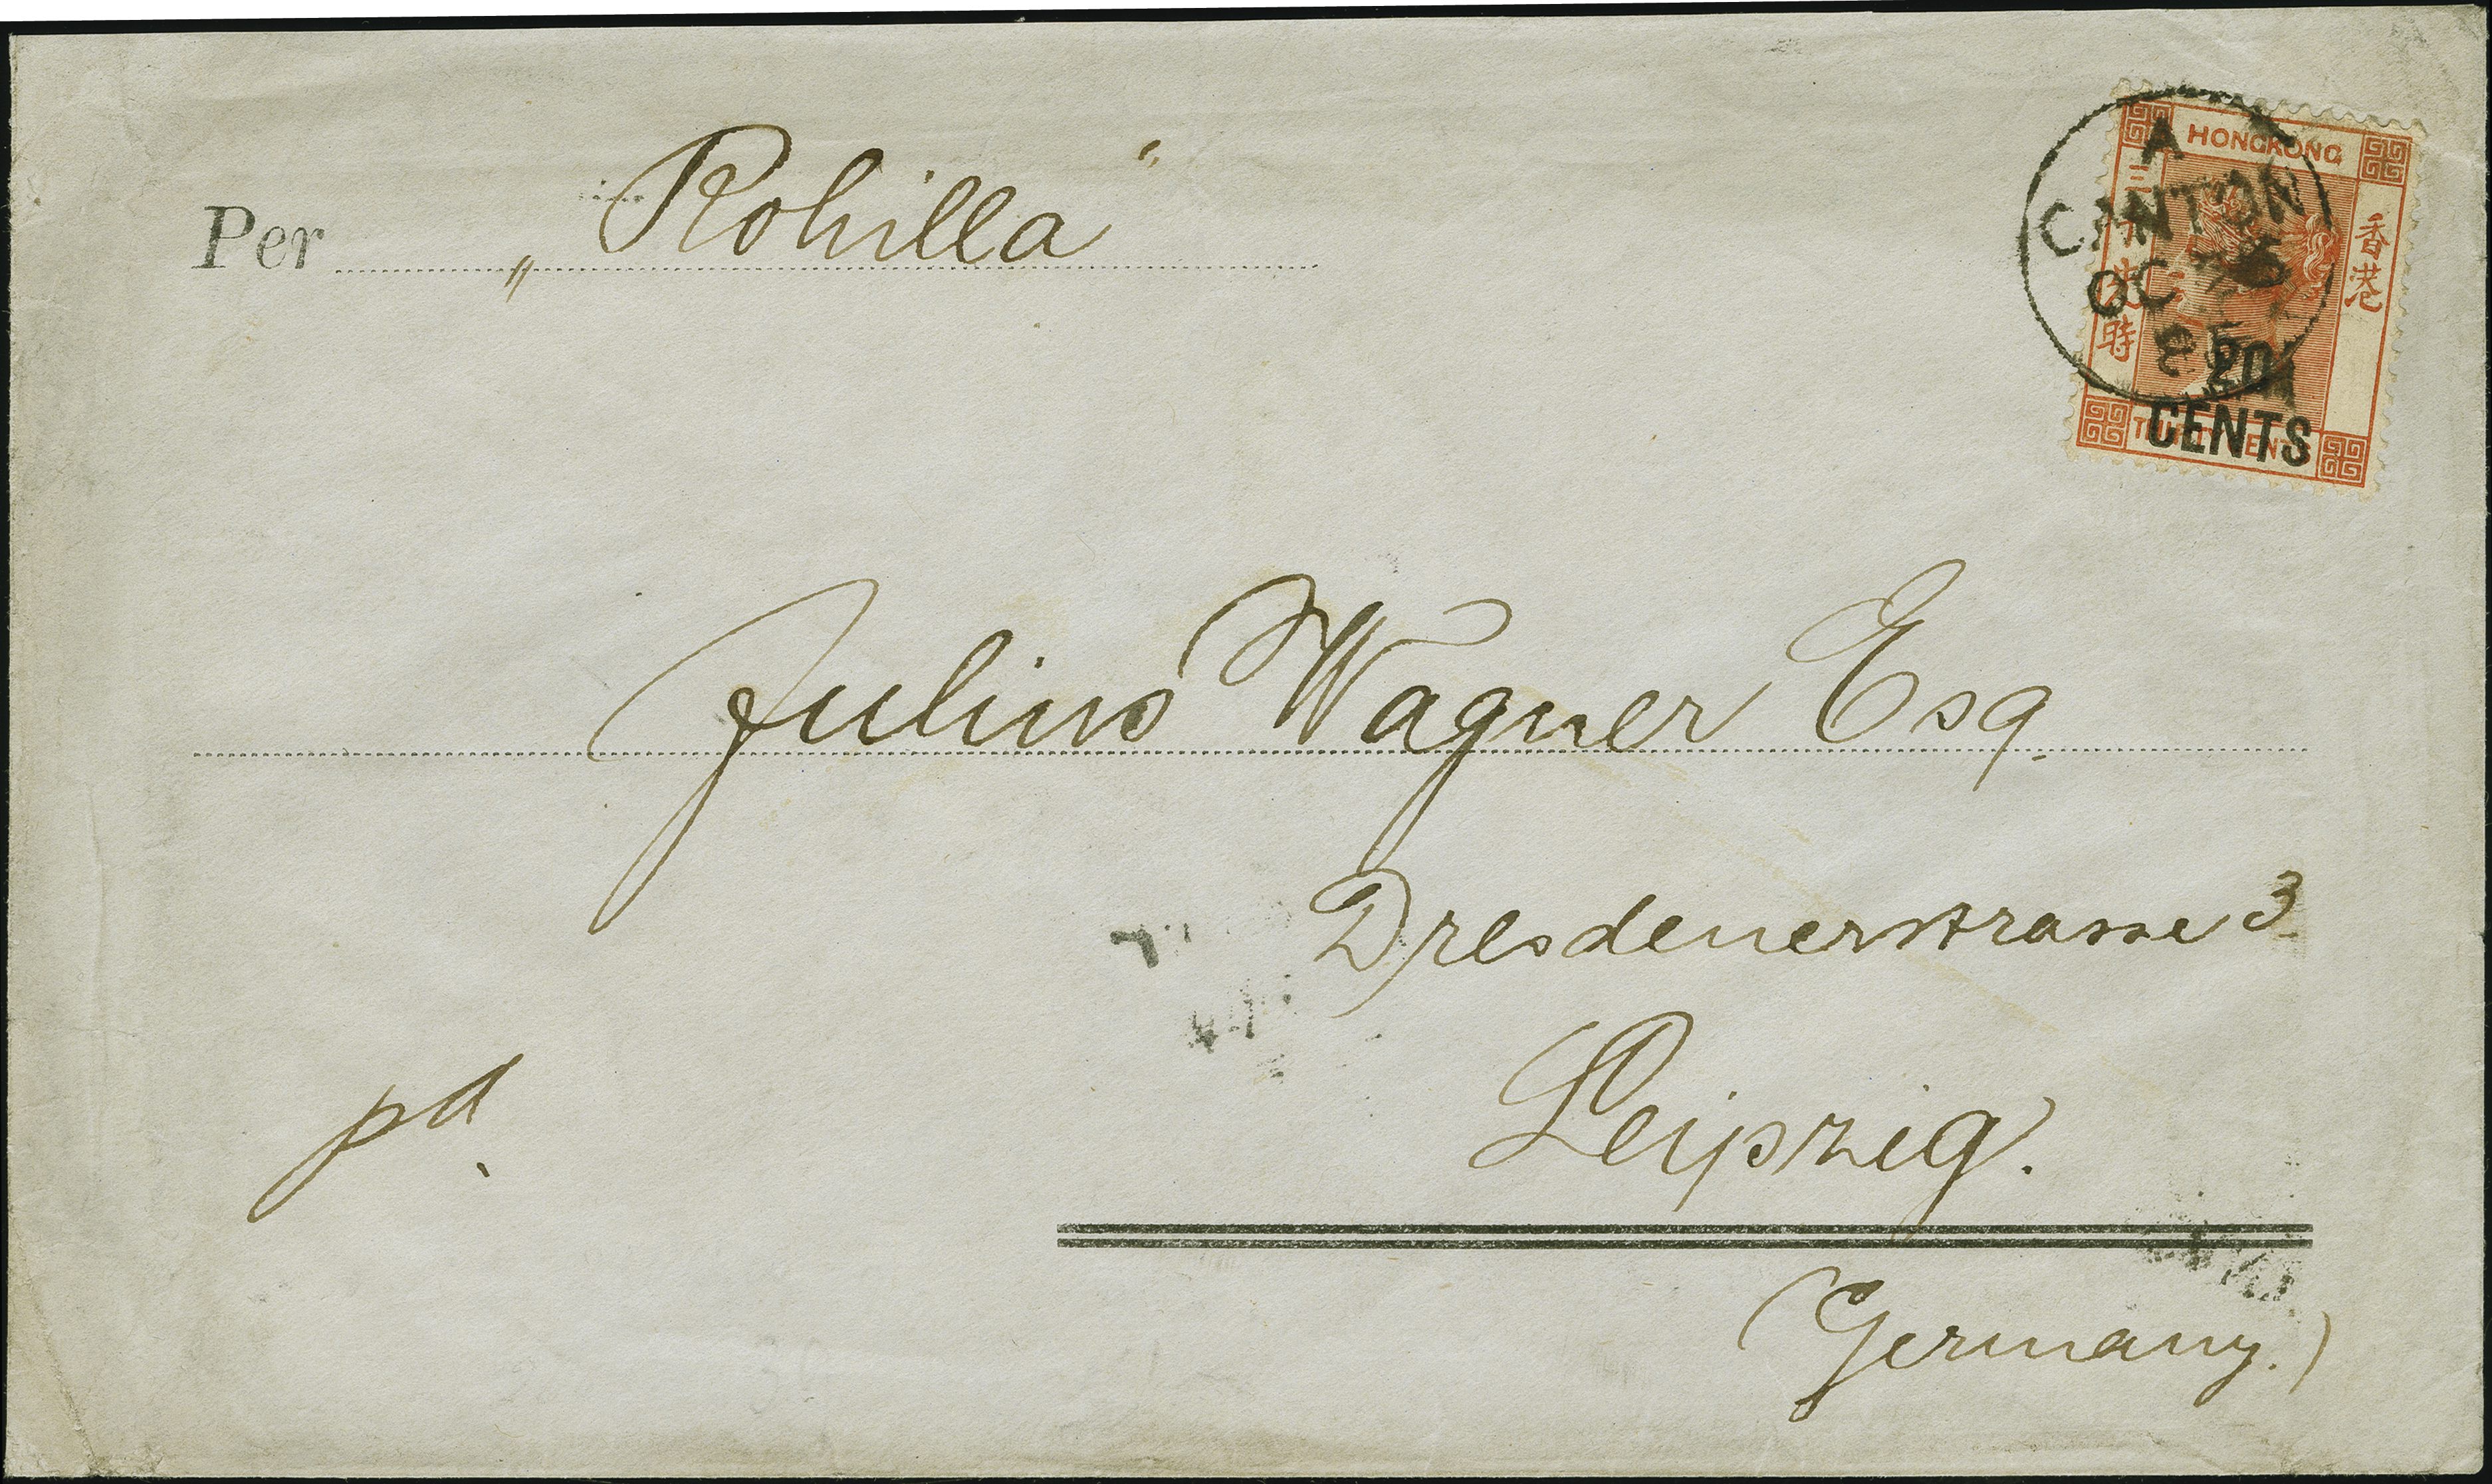 Per „Rohilla“
A
CANTON
OC
HONGKONG
香港
時
20
CENTS
Julius Wagner Esq.
Dresdenerstrasse 3
Leipzig.
pd.
(Germany.)